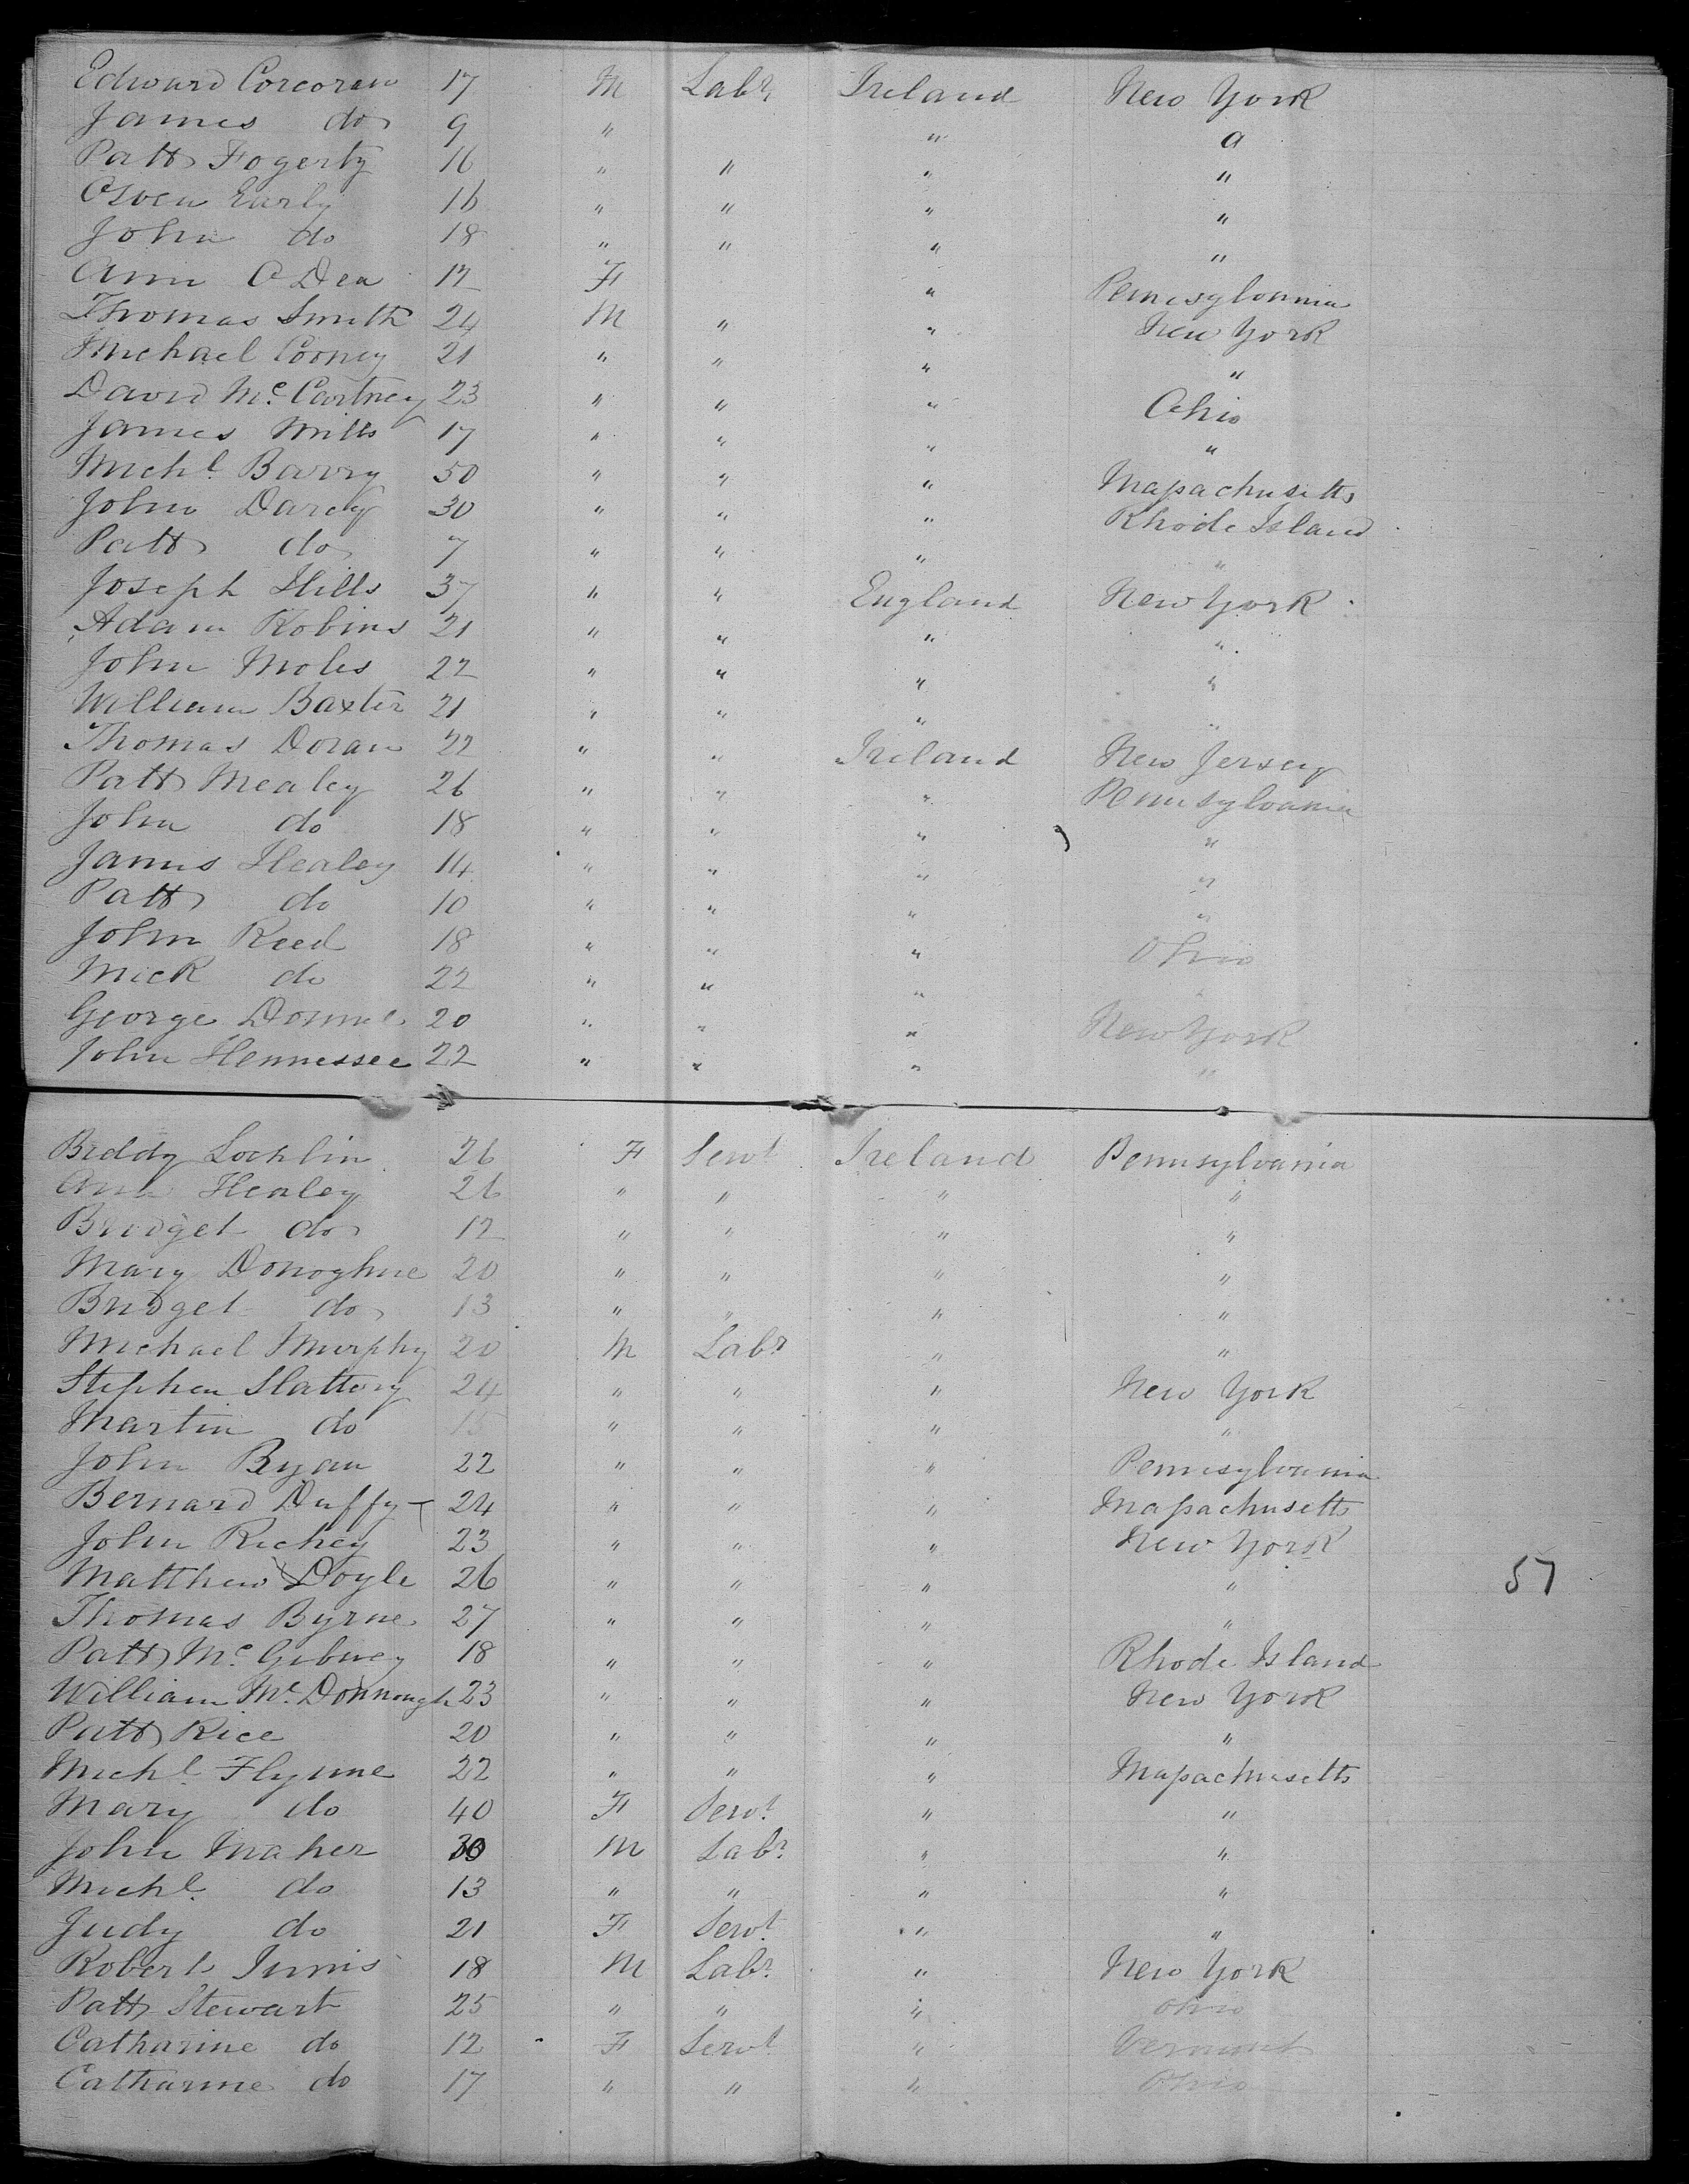 Edward Corcoran 17 M Labr Ireland New York
James do 9 " " "
Patt Fogerty 16 " " " "
Owen Early 16 " " " "
John do 18 " " " "
Ann O Dea 17 F " Pennsylvania
Thomas Smith 24 M " " New York
Michael Cooney 21 " " " "
David McCartney 23 " " " Ohio
James Mills 17 " " " "
Michl. Barry 50 " " " Massachusetts
John Darcy 30 " " " Rhode Island
Patt do 7 " " " "
Joseph Hills 37 " " England New York
Adam Robins 21 " " " "
John Moles 22 " " " "
William Baxter 21 " " " "
Thomas Doran 22 " " Ireland New Jersey
Patt Mealey 26 " " " Pennsylvania
John do 18 " " " "
James Healey 14 " " " "
Patt do 10 " " " "
John Reed 18 " " " Ohio
Mick do 22 " " " "
George 20 " " " New York
John Hennessee 22 " " " "
Biddy Lochlin 26 F Servt Ireland Pennsylvania
Ann Healey 26 " " " "
Bridget do 12 " " " "
Mary Donoghue 20 " " " "
Bridget do 13 " " " "
Michael Murphy 20 M Labr " "
Stephen Slattery 24 " " " New York
Martin do 15 " " " "
John Ryan 22 " " " Pennsylvania
Bernard Duffy 24 " " " Massachusetts
John Richey 23 " " " New York
Matthew Doyle 26 " " " " 57
Thomas Byrne 27 " " " "
Patt McGibney 18 " " " Rhode Island
William McDonnough 23 " " " New York
Patt Rice 20 " " " "
Michl. Flynne 22 " " " Massachusetts
Mary do 40 F Servt " "
John Maher 30 M Labr " "
Michl. do 13 " " " "
Judy do 21 F Servt " "
Robert Innis 18 M Labr " New York
Patt Stewart 25 " " " Ohio
Catharine do 12 F Servt " Vermont
Catharine do 17 " " " Ohio